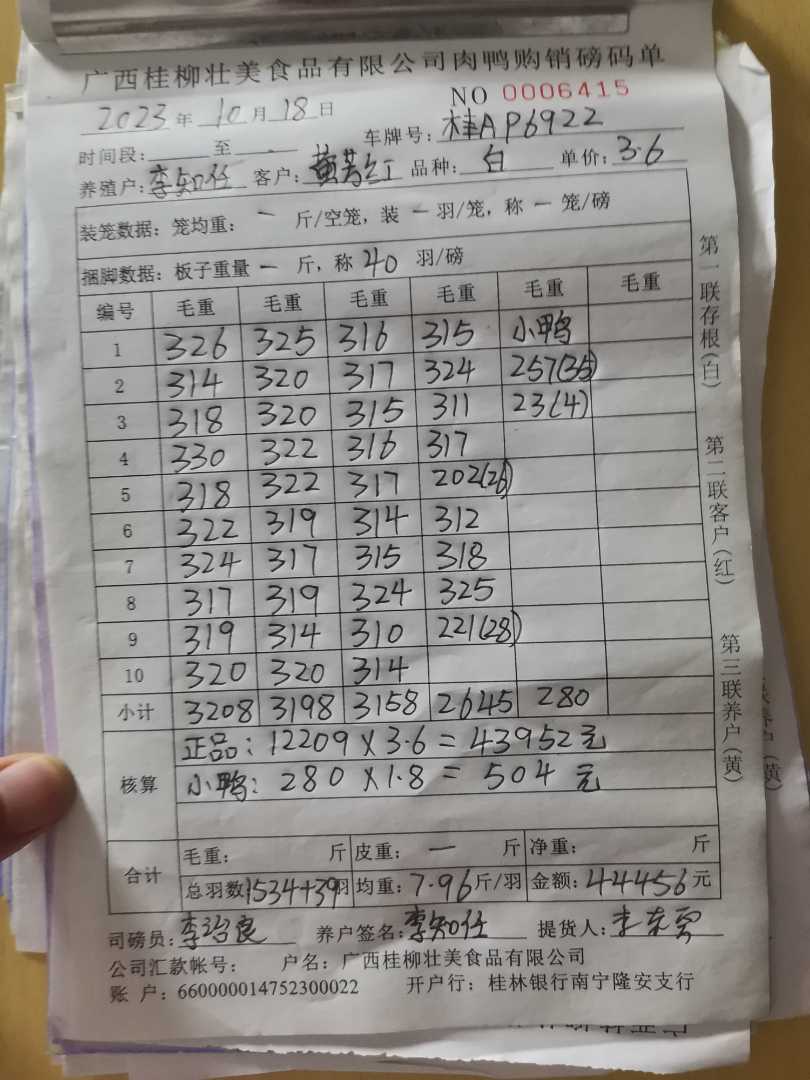 广西桂柳壮美食品有限公司肉鸭购销磅码单
NO 0006415
2023年10月18日
时间段：至 车牌号：桂AP6922
养殖户：李知任 客户：黄芳红 品种：白 单价：3.6
装笼数据：笼均重：一 斤/空笼，装 一 羽/笼，称 一 笼/磅
捆脚数据：板子重量 一 斤，称 40 羽/磅
编号 毛重 毛重 毛重 毛重 毛重 毛重
1 326 325 316 315 小鸭
2 314 320 317 324 257(35)
3 318 320 315 311 23(4)
4 330 322 316 317
5 318 322 317 202(26)
6 322 319 314 312
7 324 317 315 318
8 317 319 324 325
9 319 314 310 221(28)
10 320 320 314
小计 3208 3198 3158 2645 280
核算
正品：12209×3.6=43952元
小鸭：280×1.8=504元
合计
毛重： 斤 皮重：一 斤 净重： 斤
总羽数1534+39羽 均重：7.96斤/羽 金额：44456元
司磅员：李治良 养户签名：李知任 提货人：
公司汇款帐号： 户名：广西桂柳壮美食品有限公司
账 户：660000014752300022 开户行：桂林银行南宁隆安支行
第一联存根(白)
第二联客户(红)
第三联养户(黄)